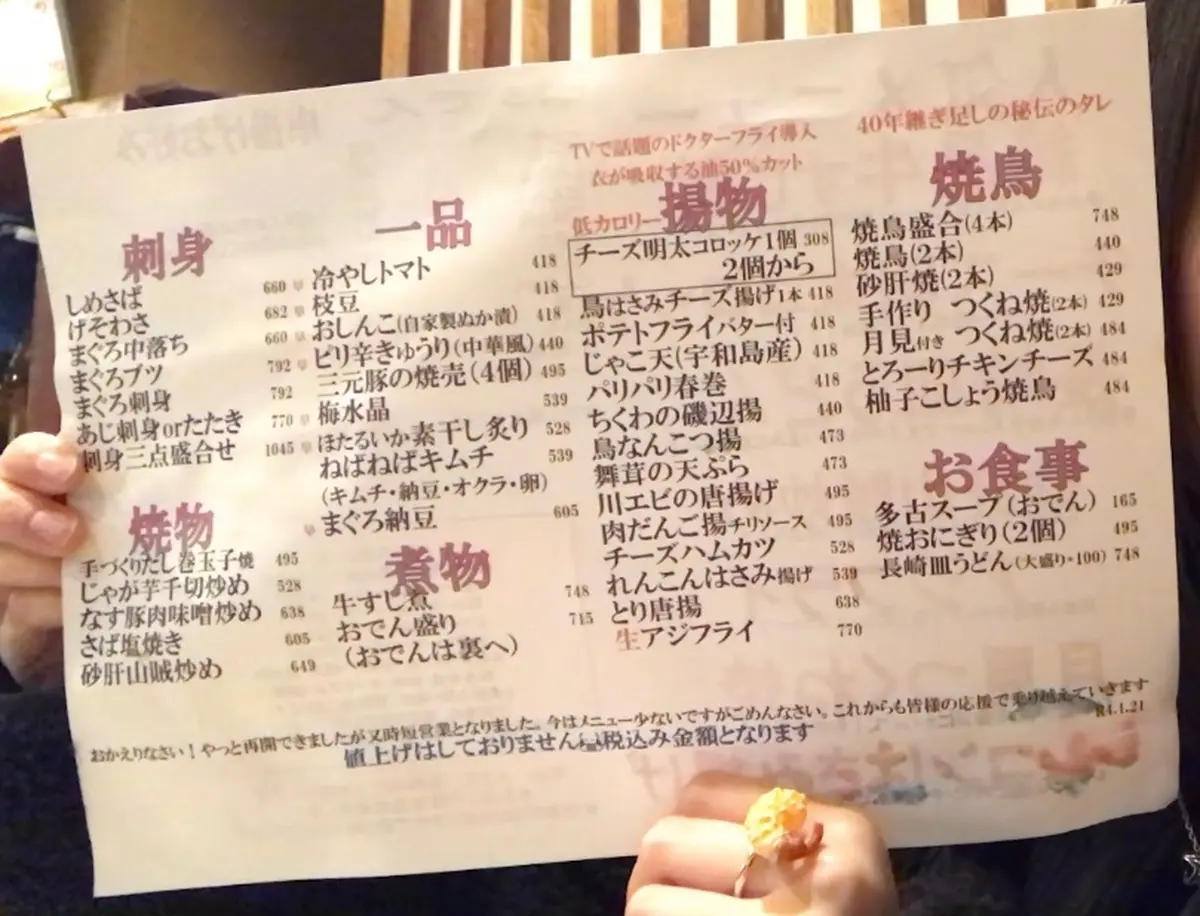 刺身
しめさば 660
げそわさ 682
まぐろ中落ち 660
まぐろブツ 792
まぐろ刺身 792
あじ刺身orたたき 770
刺身三点盛合せ 1045
焼物
手づくりだし巻玉子焼 495
じゃが芋千切炒め 528
なす豚肉味噌炒め 638
さば塩焼き 605
砂肝山賊炒め 649
一品
冷やしトマト 418
枝豆 418
おしんこ(自家製ぬか漬) 418
ピリ辛きゅうり(中華風) 440
三元豚の焼売(4個) 495
梅水晶 539
ほたるいか素干し炙り 528
ねばねばキムチ 539
(キムチ・納豆・オクラ・卵)
まぐろ納豆 605
煮物
牛すじ煮 748
おでん盛り 715
(おでんは裏へ)
TVで話題のドクターフライ導入
衣が吸収する油50%カット
低カロリー揚物
チーズ明太コロッケ1個 308
2個から
鳥はさみチーズ揚げ1本 418
ポテトフライバター付 418
じゃこ天(宇和島産) 418
パリパリ春巻 418
ちくわの磯辺揚 440
鳥なんこつ揚 473
舞茸の天ぷら 473
川エビの唐揚げ 495
肉だんご揚チリソース 495
チーズハムカツ 528
れんこんはさみ揚げ 539
とり唐揚 638
生アジフライ 770
40年継ぎ足しの秘伝のタレ
焼鳥
焼鳥盛合(4本) 748
焼鳥(2本) 440
砂肝焼(2本) 429
手作り つくね焼(2本) 429
月見付き つくね焼(2本) 484
とろーりチキンチーズ 484
柚子こしょう焼鳥 484
お食事
多古スープ(おでん) 165
焼おにぎり(2個) 495
長崎皿うどん(大盛り+100) 748
おかえりなさい!やっと再開できましたが又時短営業となりました。今はメニュー少ないですがごめんなさい。これからも皆様の応援で乗り越えていきます
R4.1.21
値上げはしておりません 税込み金額となります